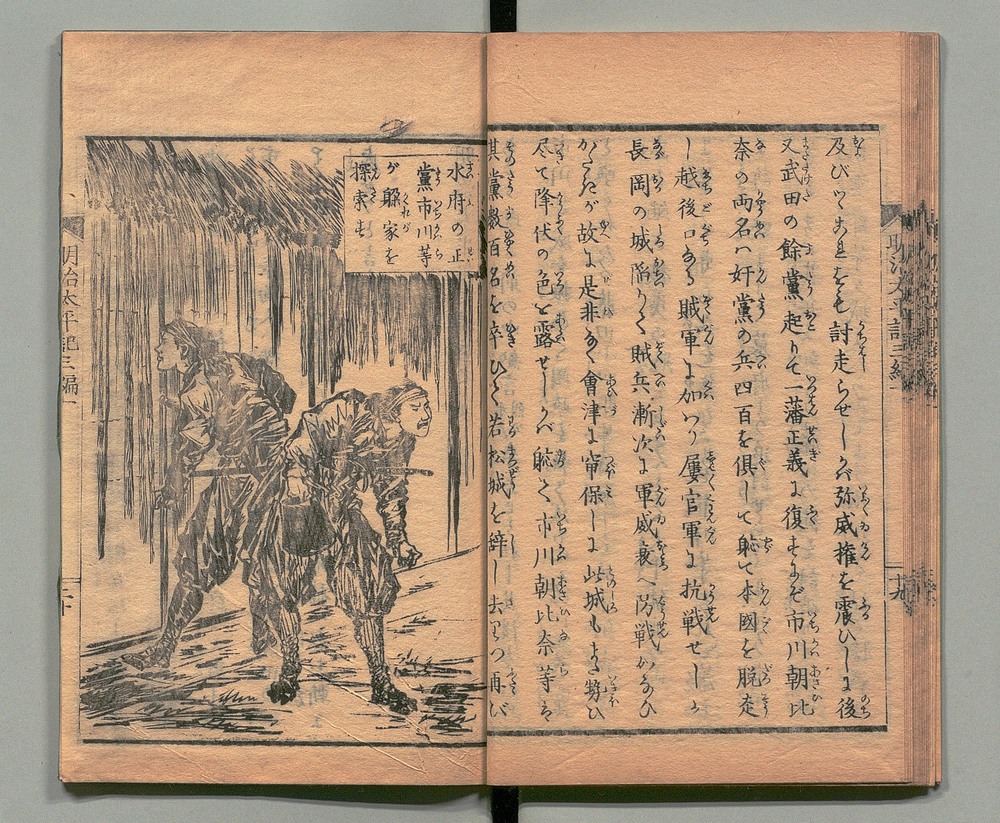 及びつゝこれをも討走らせしかバ弥威権を震ひしに後
又武田の餘黨起りて一藩正義に復するにぞ市川朝比
奈の両名ハ奸黨の兵四百を倶して躬て本國を脱走
し越後口なる賊軍に加ハり屡官軍に抗戦せしが
長岡の城陥りて賊兵漸次に軍威衰へ防戦かなひ
がたきが故に是非なく會津に帘保しに此城もはや勢ひ
尽て降伏の色を露せしかバ躬て市川朝比奈等ハ
其黨数百名を卒ひて若松城を辞し去りつ再び
水府の正
黨市川等
が躱家を
探索す
明治太平記三編
二十
明治太平記三編
十九